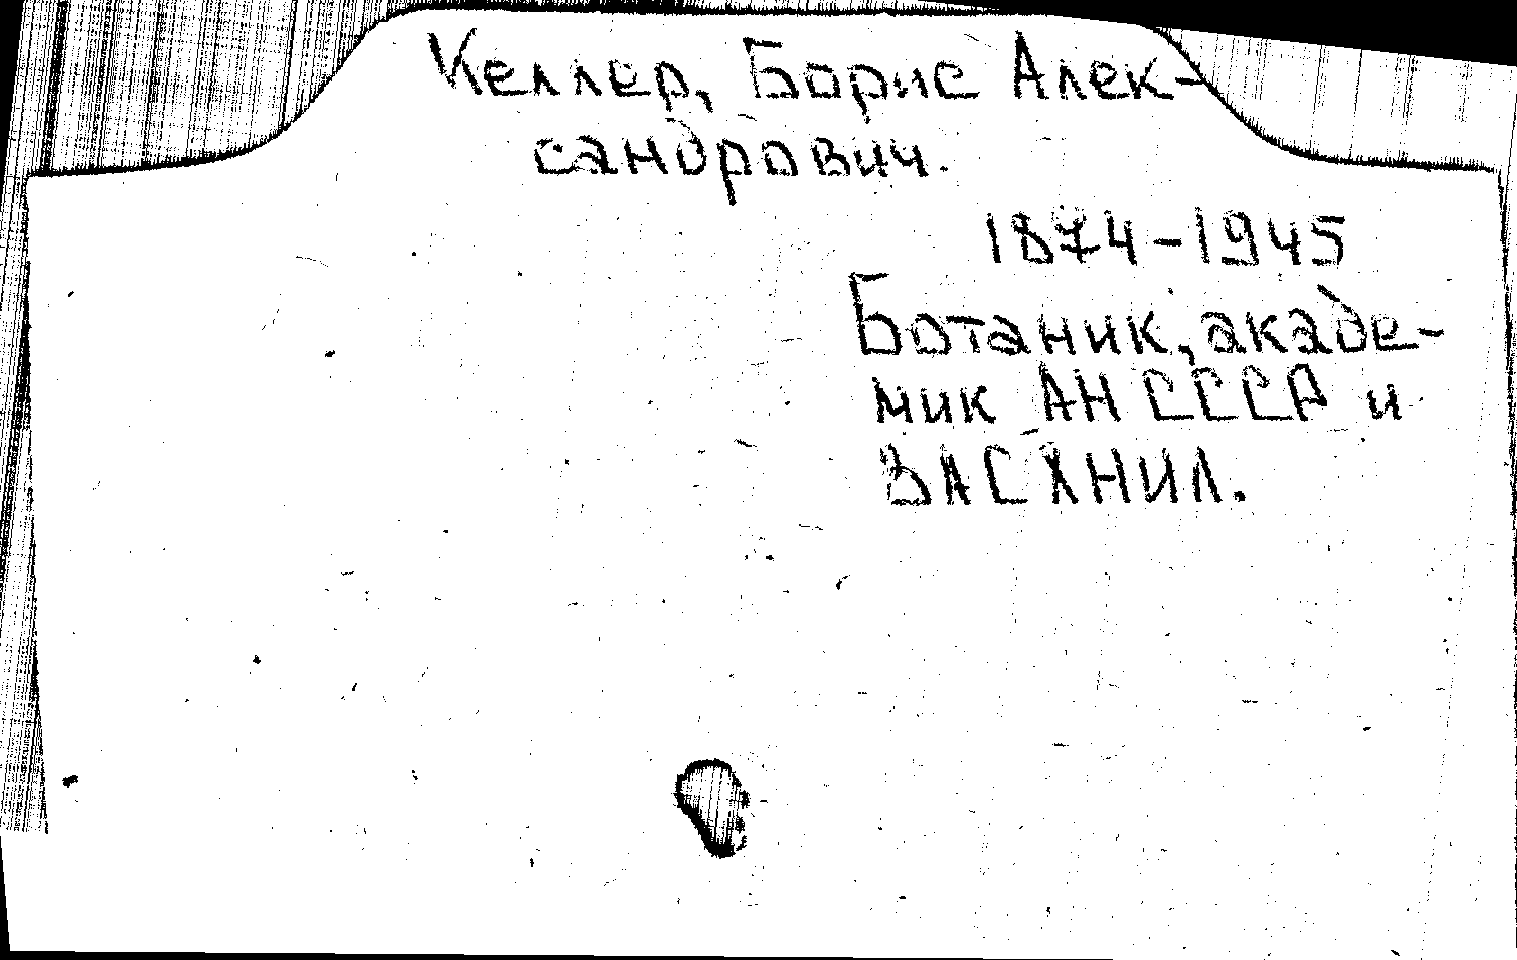 Келлер, Борис Алек-
сандрович.
1874-1945
Ботаник, акаде-
мик АН СССР и
ВАСХНИЛ.